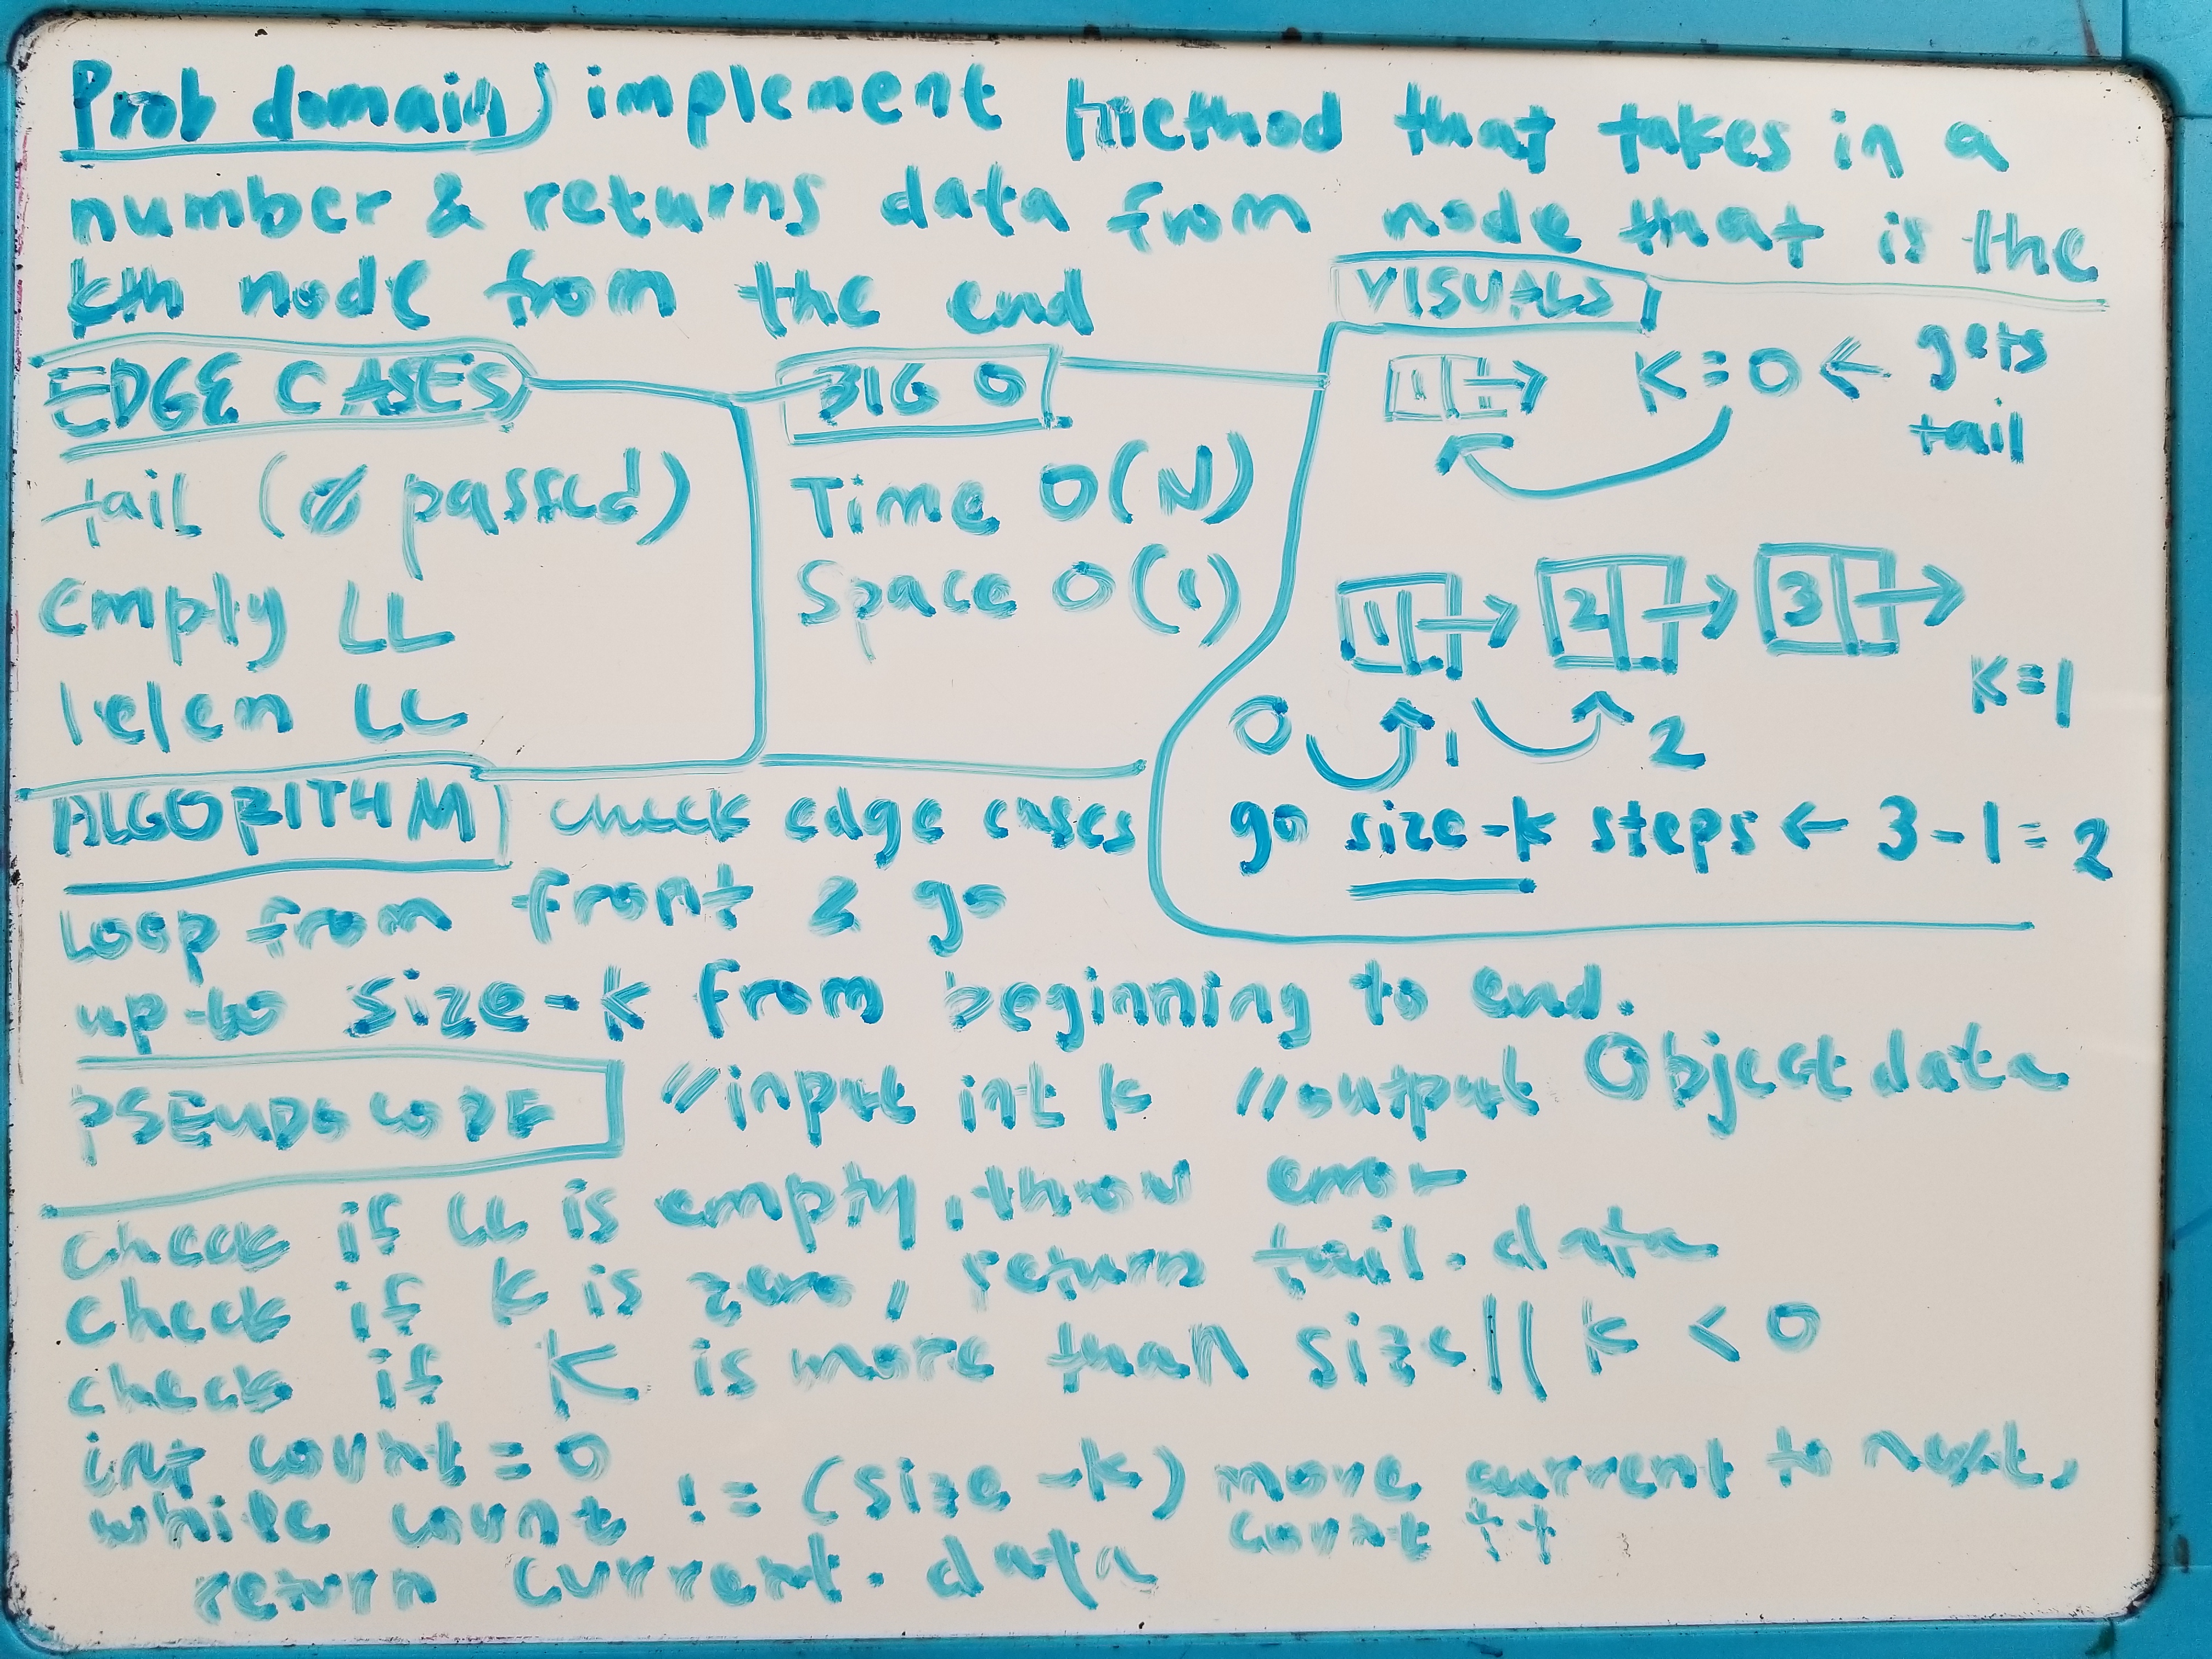 Prob domain) implement method that takes in a
number & returns data from node that is the
kth node from the end
EDGE CASES
tail (0 passed)
empty LL
1 elem LL
BIG O
Time O(N)
Space O(1)
VISUALS
1
K=0 ← gets
tail
1 → 2 → 3 →
K=1
0 1 2
go size-k steps ← 3-1=2
ALGORITHM
check edge cases
Loop from front & go
up to size-k from beginning to end.
PSEUDOCODE
//input int k //output Object data
check if LL is empty, throw error
check if k is zero, return tail.data
check if K is more than size || k < 0
int count = 0
while count != (size-k) move current to next,
count ++
return current.data